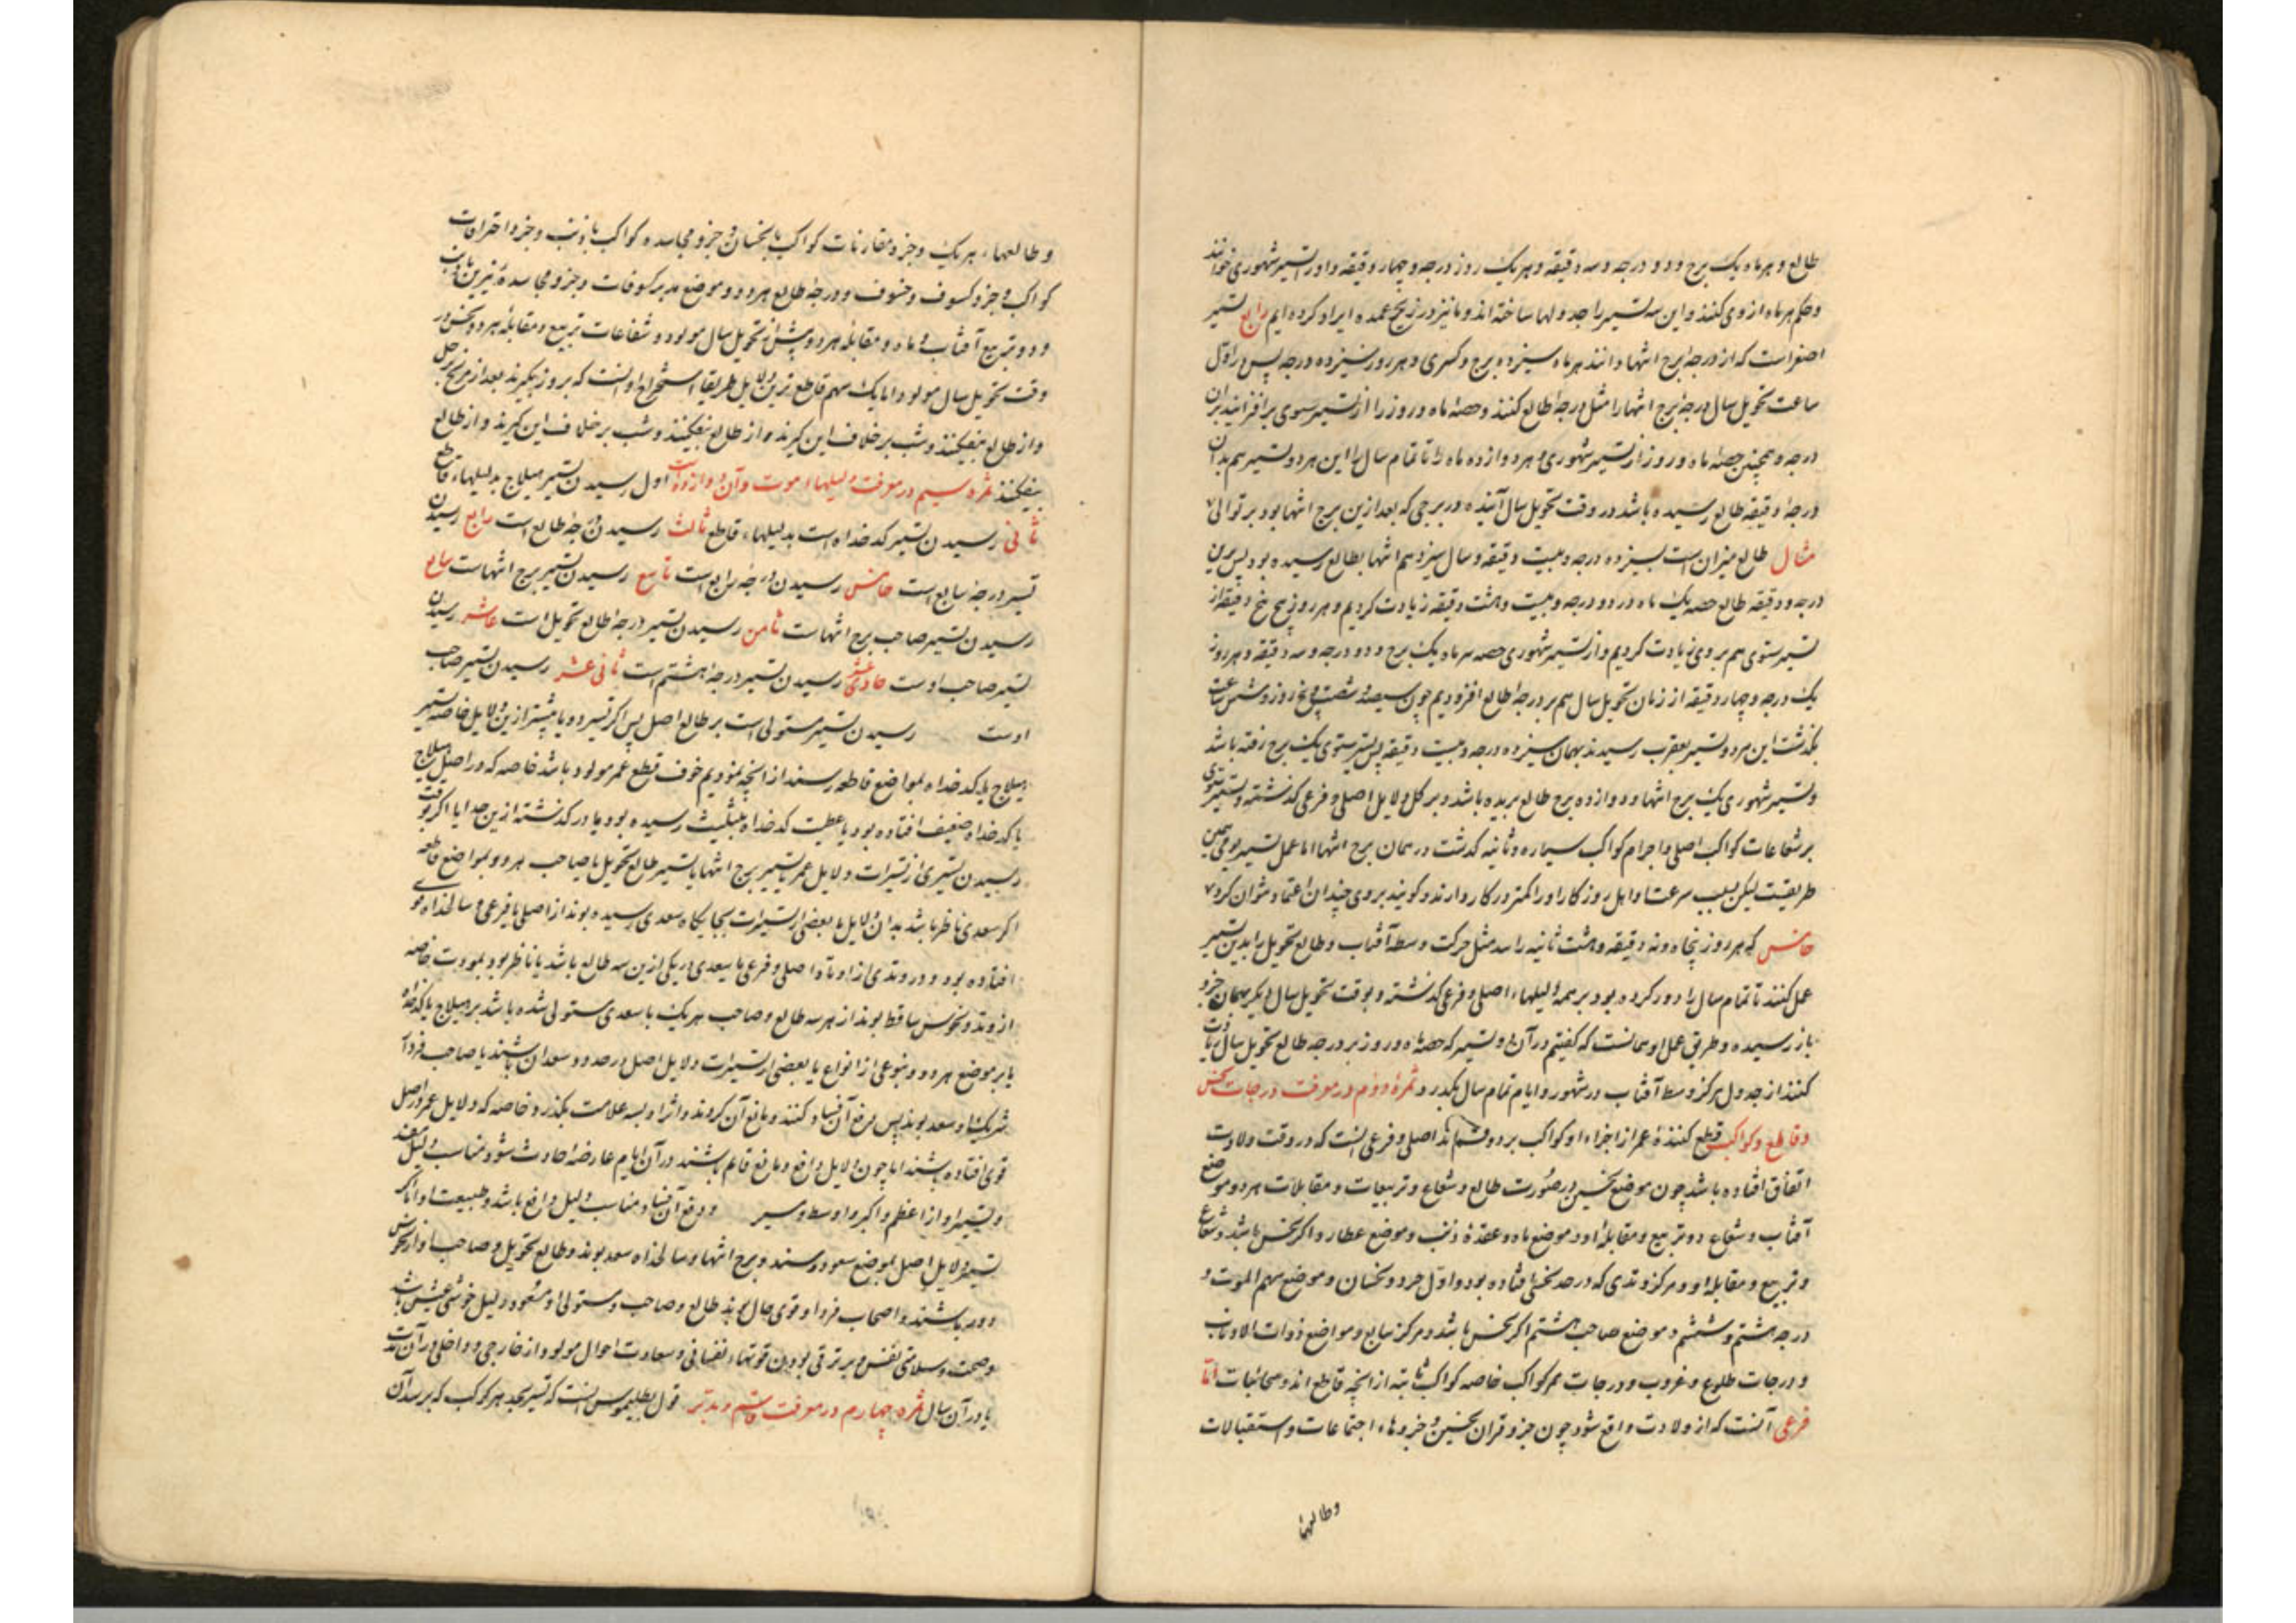 طالع و هر ماه یک برج و دو درجه و سه دقیقه و هر یک روز درجه و چهار دقیقه و او را تسییر شهوری خوانند
و حکم هر ماه از وی کنند و این سه تسییر را جدولها ساخته اند و ما نیز در زیج عمده ایراد کرده ایم رابع تسییر
اصغر است که از درجه برج انتها دانند هر ماه سیزده برج و کسری و هر روز سیزده درجه پس در اول
ساعت تحویل سال درجه برج انتها را مثل درجه طالع کنند و حصه ماه و روز را از تسییر سنوی برافزایند بران
درجه و همچنین حصه ماه و روز از تسییر شهوری و هر دوازده ماه را تا تمام سال را این هر دو تسییر هم بدان
درجه و دقیقه طالع رسیده باشد در وقت تحویل سال آینده در برجی که بعد ازین برج انتها بود بر توالی
مثال طالع میزان است بسیزده درجه و بیست دقیقه و سال سیزدهم انتها بطالع رسیده بود پس برین
درجه و دقیقه طالع حصه یک ماه در دو درجه و بیست و هشت دقیقه زیادت کردیم و هر روز پنج پنج دقیقه از
تسییر سنوی هم بر وی زیادت کردیم و از تسییر شهوری حصه هر ماه یک برج و دو درجه و سه دقیقه و هر روز
یک درجه و چهار دقیقه از زمان تحویل سال هم بر درجه طالع افزودیم چون سیصد و شصت و پنج روز و شش ساعت
بگذشت این هر دو تسییر بعقرب رسیدند بهمان سیزده درجه و بیست دقیقه پس تسییر سنوی یک برج رفته باشد
و تسییر شهوری یک برج انتها و دوازده برج طالع بریده باشد و بر کل دلایل اصلی و فرعی گذشته و تسییر سنوی
بر شعاعات کواکب اصلی و اجرام کواکب سیاره و ثابته گذشت در همان برج انتها اما عمل تسییر یومی همین
طریقست لیکن بسبب سرعت او اهل روزگار او را کمتر در کار دارند و گویند بر وی چندان اعتماد نتوان کرد
خامس که هر روز پنجاه و نه دقیقه و هشت ثانیه راند مثل حرکت وسط آفتاب و طالع تحویل را بدین تسییر
عمل کنند تا تمام سال را دور کرده بود بر همه دلیلهاء اصلی و فرعی گذشته و بوقت تحویل سال دیگر بهمان جزو
باز رسیده و طریق عمل او همانست که گفتیم در آن دو تسییر که حصه ماه و روز بر درجه طالع تحویل سال زیادت
کنند از جدول مرکز وسط آفتاب در شهور و ایام تمام سال بگذرد و ثمره دوم در معرفت درجات نحس
و قاطع و کواکب قطع کننده عمر از اجزاء او کواکب بر دو قسم اند اصلی و فرعی اینست که در وقت ولادت
اتفاق افتاده باشد چون موضع نحسین در صورت طالع و شعاع و تربیعات و مقابلات هر دو و موضع
آفتاب و شعاع دو تربیع و مقابله او و موضع ماه و عقده ذنب و موضع عطارد اگر نحس باشد و شعاع
و تربیع و مقابله او و مرکز وتدی که در حد نحسی افتاده بود و اول حدود نحسان و موضع سهم الموت و
درجه هشتم و ششم و موضع صاحب هشتم اگر نحس باشد و مرکز سابع و مواضع ذوات الاذناب
و درجات طلوع و غروب و درجات ممر کواکب خاصه کواکب ثابته از آنچه قاطع اند و سحابیات اما
فرعی آنست که از ولادت واقع شود چون جزو قران نحسین و جزوهاء اجتماعات و استقبالات
وطالعها
و طالعهاء هر یک و جزو مقارنات کواکب با نحسان و جزو مجاسده کواکب با ذنب و جزو احتراقات
کواکب و جزو کسوف و خسوف و درجه طالع هر دو و موضع مدبر کسوفات و جزو مجاسده نیرین با ذنب
و دو تربیع آفتاب و ماه و مقابله هر دو پیش از تحویل سال مولود و شعاعات تربیع و مقابله هر دو نحس در
وقت تحویل سال مولود اما یک سهم قاطع ترین دلایل طریقه استخراج او آنست که بروز بگیرند بعد از مریخ زحل
و از طالع بیفکنند و شب برخلاف این گیرند و از طالع بیفکنند و شب برخلاف این گیرند و از طالع
بیفکنند ثمره سیم در معرفت دلیلهاء موت و آن دوازده است اول رسیدن تسییر هیلاج بدلیلهاء قاطع
ثانی رسیدن تسییر کدخداه است بدلیلهاء قاطع ثالث رسیدن درجه طالع است رابع رسیدن
تسییر درجه سابع است خامس رسیدن درجه رابع است تاسع رسیدن تسییر برج انتهاست سابع
رسیدن تسییر صاحب برج انتهاست ثامن رسیدن تسییر درجه طالع تحویل است عاشر رسیدن
تسییر صاحب اوست حادی عشر رسیدن تسییر درجه هشتم است ثانی عشر رسیدن تسییر صاحب
اوست رسیدن تسییر مستولی است بر طالع اصل پس اگر تسییر دو یا بیشتر ازین دلایل خاصه تسییر
هیلاج یا کدخداه بمواضع قاطعه رسند از آنچه نمودیم خوف قطع عمر مولود باشد خاصه که در اصل هیلاج
یا کدخداه ضعیف افتاده بود یا عطیت کدخداه بتثلیث رسیده بود یا در گذشته ازین حد ایا اگر بوقت
رسیدن تسییری از تسییرات دلایل عمر یا تسییر برج انتها یا تسییر طالع تحویل یا صاحب هر دو بمواضع قاطعه
اگر سعدی ناظر باشد بدان دلایل یا بعضی از تسییرات بجایگاه سعدی رسیده بوند از اصلی یا فرعی و سالخداه قوی
افتاده بود و در وتدی از اوتاد اصلی و فرعی یا سعدی در یکی ازین سه طالع باشد یا ناظر بود بمودت خاصه
از وتد و نحوس ساقط بوند از هر سه طالع و صاحب هر یک یا سعدی مستولی شده باشد بر هیلاج یا کدخداه
یا بر موضع هر دو بنوعی از انواع یا بعضی از تسییرات دلایل اصل در حدود سعدان باشند یا صاحب فردار
شریک او سعد بوند پس دفع آن فساد کنند و مانع آن گردند و اثر او بسه علامت بگذرد خاصه که دلایل عمر در اصل
قوی افتاده باشند اما چون دلایل دافع و مانع قایم باشند در آن ایام عارضه حادث شود مناسب دلیل مفسد
و تسییر او از اعظم و اکبر و اوسط و سیر و دفع آن فساد مناسب دلیل دافع باشد و طبیعت او اما اگر
تسییر دلایل اصل بموضع سعود رسند و برج انتها و سالخداه سعد بوند و طالع تحویل و صاحب او از نحوس
دور باشند و اصحاب فردار قوی حال بوند طالع و صاحب و مستولی او مسعود دلیل خوشی عیش باشد
و صحت و سلامتی نفس و بر ترقی بودن قوتهاء نفسانی و سعادت احوال مولود از خارجی و داخلی در آن مدت
یا در آن سال ثمره چهارم در معرفت قاسم و مدبر قول بطلیموس اینست که تسییر بحد هر کوکب که برسد آن